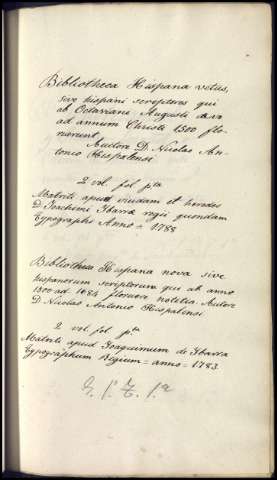 Bibliotheca Hispana vetus,
sive hispani scriptores qui
ab Octaviani Augusti ævo
ad annum Christi 1500 flo-
ruerunt
Auctore D. Nicolas An-
tonio Hispalensi
2 vol fol pta
Matriti apud viudam et heredes
D. Joachimi Ibarræ regii quondam
typographi Anno = 1788
Bibliotheca Hispana nova sive
hispanorum scriptorum qui ab anno
1500 ad 1684 floruere notitia. Autor
D. Nicolas Antonio Hispalensi
2 vol fol pta
Matriti apud Joaquimum de Ibarra
typographum Regium = anno = 1783